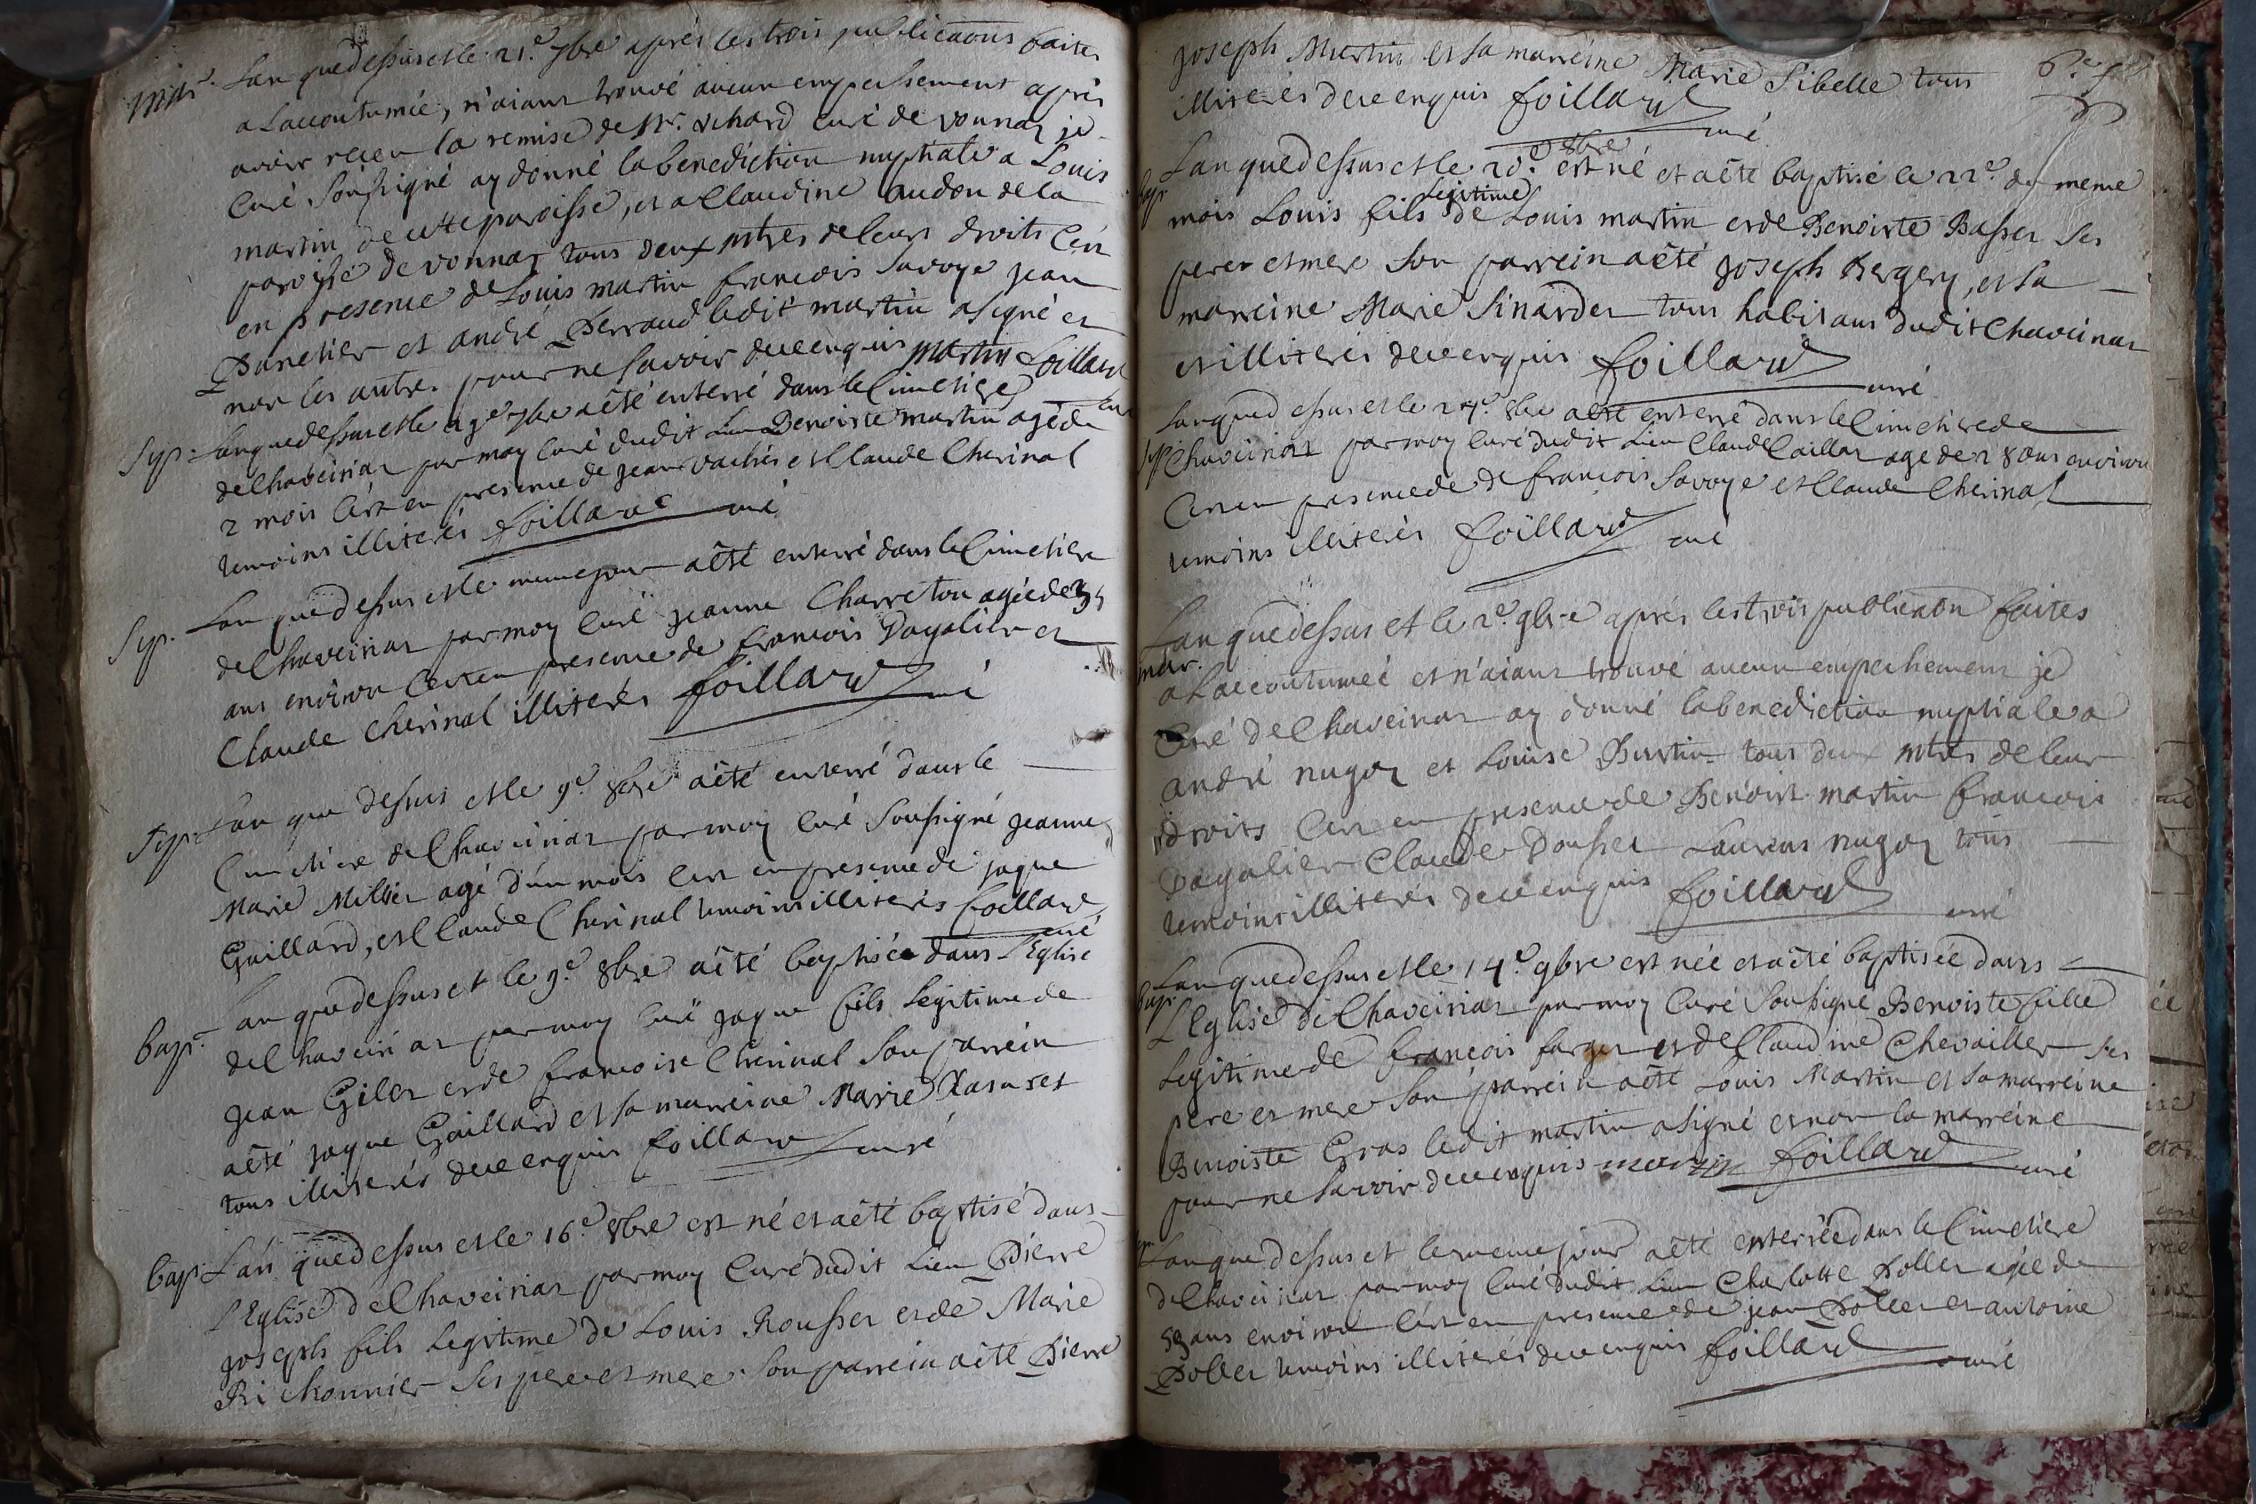 Mar. Lan quedessus et le 21.e 7bre aprés les trois publicaons faites
a Laccoutumée, n'aiant trouvé aucun empechement aprés
avoir reçeu la remise de Mr. Achard curé de vonnaz je
Curé Soussigné ay donné la benediction nuptiale a Louis
martin de cette paroisse, et a Claudine audon de la
paroisse de vonnaz tous deux mtres de leurs droits Cest
en presence de Louis martin francois Savoye jean
Panetier et andré Perraud ledit martin a signé et
non les autres pour ne savoir de ce enquis Martin foillard
curé
Sep. Lanquedessus et le 29e 7bre a eté enterré dans le Cimetiere
de Chaveiriat par moy Curé dudit Lieu Benoiste martin agé de
2 mois Cest en presence de jean vachié et Claude Cherinal
temoins illiterés foillard curé
Sep. Lan quedessus et le meme jour a eté enterré dans le Cimetiere
de Chaveiriat par moy Curé jeanne Charreton agée de 35
ans environ Cest en presence de francois Dagalier et
Claude Cherinal illiterés foillard curé
Sep. Lan que dessus et le 9.e 8bre a eté enterré dans le
Cimetiere de Chaveiriat par moy Curé Soussigné jeanne
Marie Millier agé d'un mois Cest en presence de jaque
Gaillard, et Claude Cherinal temoins illiterés foillard
curé
Bap. Lan quedessus et le 9.e 8bre a eté baptisée dans l'Eglise
de Chaveiriat par moy Curé jaque fils legitime de
jean Gilet et de francoise Cherinal Son parrein
a eté jaque Gaillard et sa marreine Marie
tous illiterés de ce enquis foillard curé
bap. Lan quedessus et le 16.e 8bre est né et a eté baptisé dans
l'Eglise de Chaveiriat par moy Curé dudit Lieu Pierre
joseph fils legitime de Louis Rousset et de Marie
Richonnier Ses pere et mere. Son parrein a eté Pierre
joseph Martin et sa marreine Marie Sibelle tous
illiterés de ce enquis foillard
curé
8bre
bap. Lan quedessus et le 20.e est né et a eté baptisé le 22.e du meme
legitime
mois Louis fils de Louis martin et de Benoiste Basset Ses
peres et mere Son parrein a eté joseph Bergery, et sa
marreine Marie Sinardet tous habitans dudit Chaveiriat
et illiterés de ce enquis foillard
curé
Sep. Lanquedessus et le 27.e 8bre a eté enterré dans le Cimetiere de
Chaveiriat par moy Curé dudit Lieu Claude Caillat agé de 28 ans environ
Cest en presence de de francois Savoye et Claude Cherinal
temoins illiterés foillard curé
Lan quedessus et le 2.e 9bre aprés les trois publicaon faites
mar. a Laccoutumeé et n'aiant trouvé aucun empechement je
Curé de Chaveiriat ay donné la benediction nuptiale a
andré nugoz et Louise Burtin tous deux mtres de leur
droits Cest en presence de Benoist martin francois
Dagalier Claude Dousset Laurens nugoz tous
temoins illiterés de ce enquis foillard
curé
Lan quedessus et le 14.e 9bre est née et a eté baptisée dans
bap. L'Eglise de Chaveiriat par moy Curé Soussigné Benoiste fille
legitime de francois farget et de Claudine Chevailler Ses
pere et mere Son parrein a eté Louis Martin et sa marreine
Benoiste Gras ledit martin a signé et non la marreine
pour ne savoir de ce enquis martin foillard curé
Lan que dessus et le meme jour a eté enterrée dans le Cimetiere
de Chaveiriat par moy Curé dudit Lieu Charlotte Pollet agée de
59 ans environ Cest en presence de jean Pollet et antoine
Pollet temoins illiterés de ce enquis foillard curé